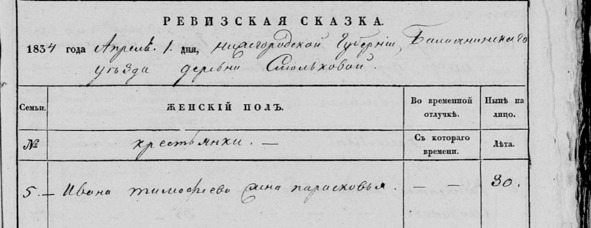 РЕВИЗСКАЯ СКАЗКА.
1834 года Апреля 1. дня, нижегородской Губерніи, Балахнинскаго
уѣзда деревни
Семьи. ЖЕНСКІЙ ПОЛЪ. Во временной отлучкѣ. Нынѣ на лицо.
№ крестьянки. — Съ котораго времени. Лѣта.
5. — Ивана тимофѣева парасковья. — — 30.